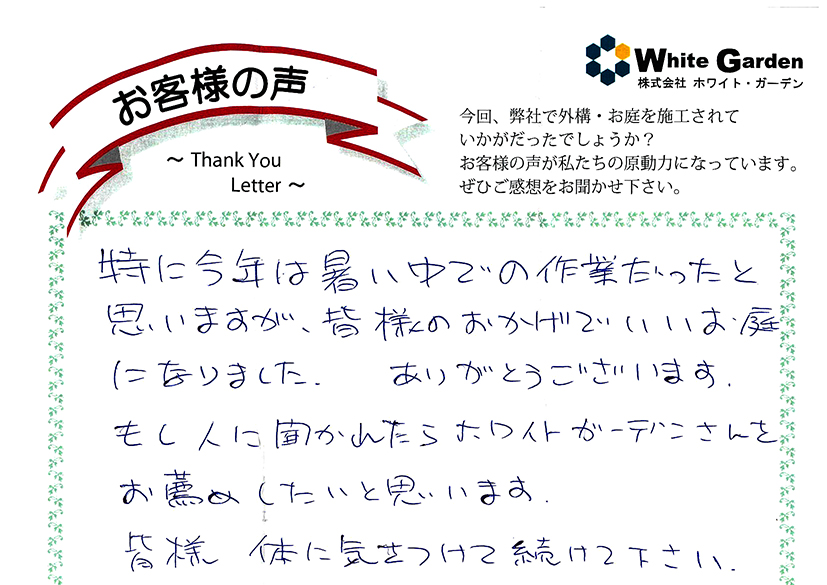 お客様の声
～ Thank You
Letter ～
White Garden
株式会社 ホワイト・ガーデン
今回、弊社で外構・お庭を施工されて
いかがだったでしょうか？
お客様の声が私たちの原動力になっています。
ぜひご感想をお聞かせ下さい。
特に今年は暑い中での作業だったと
思いますが、皆様のおかげでいいお庭
になりました. ありがとうございます.
もし人に聞かれたらホワイトガーデンさんを
お薦めしたいと思います.
皆様 体に気をつけて続けて下さい.